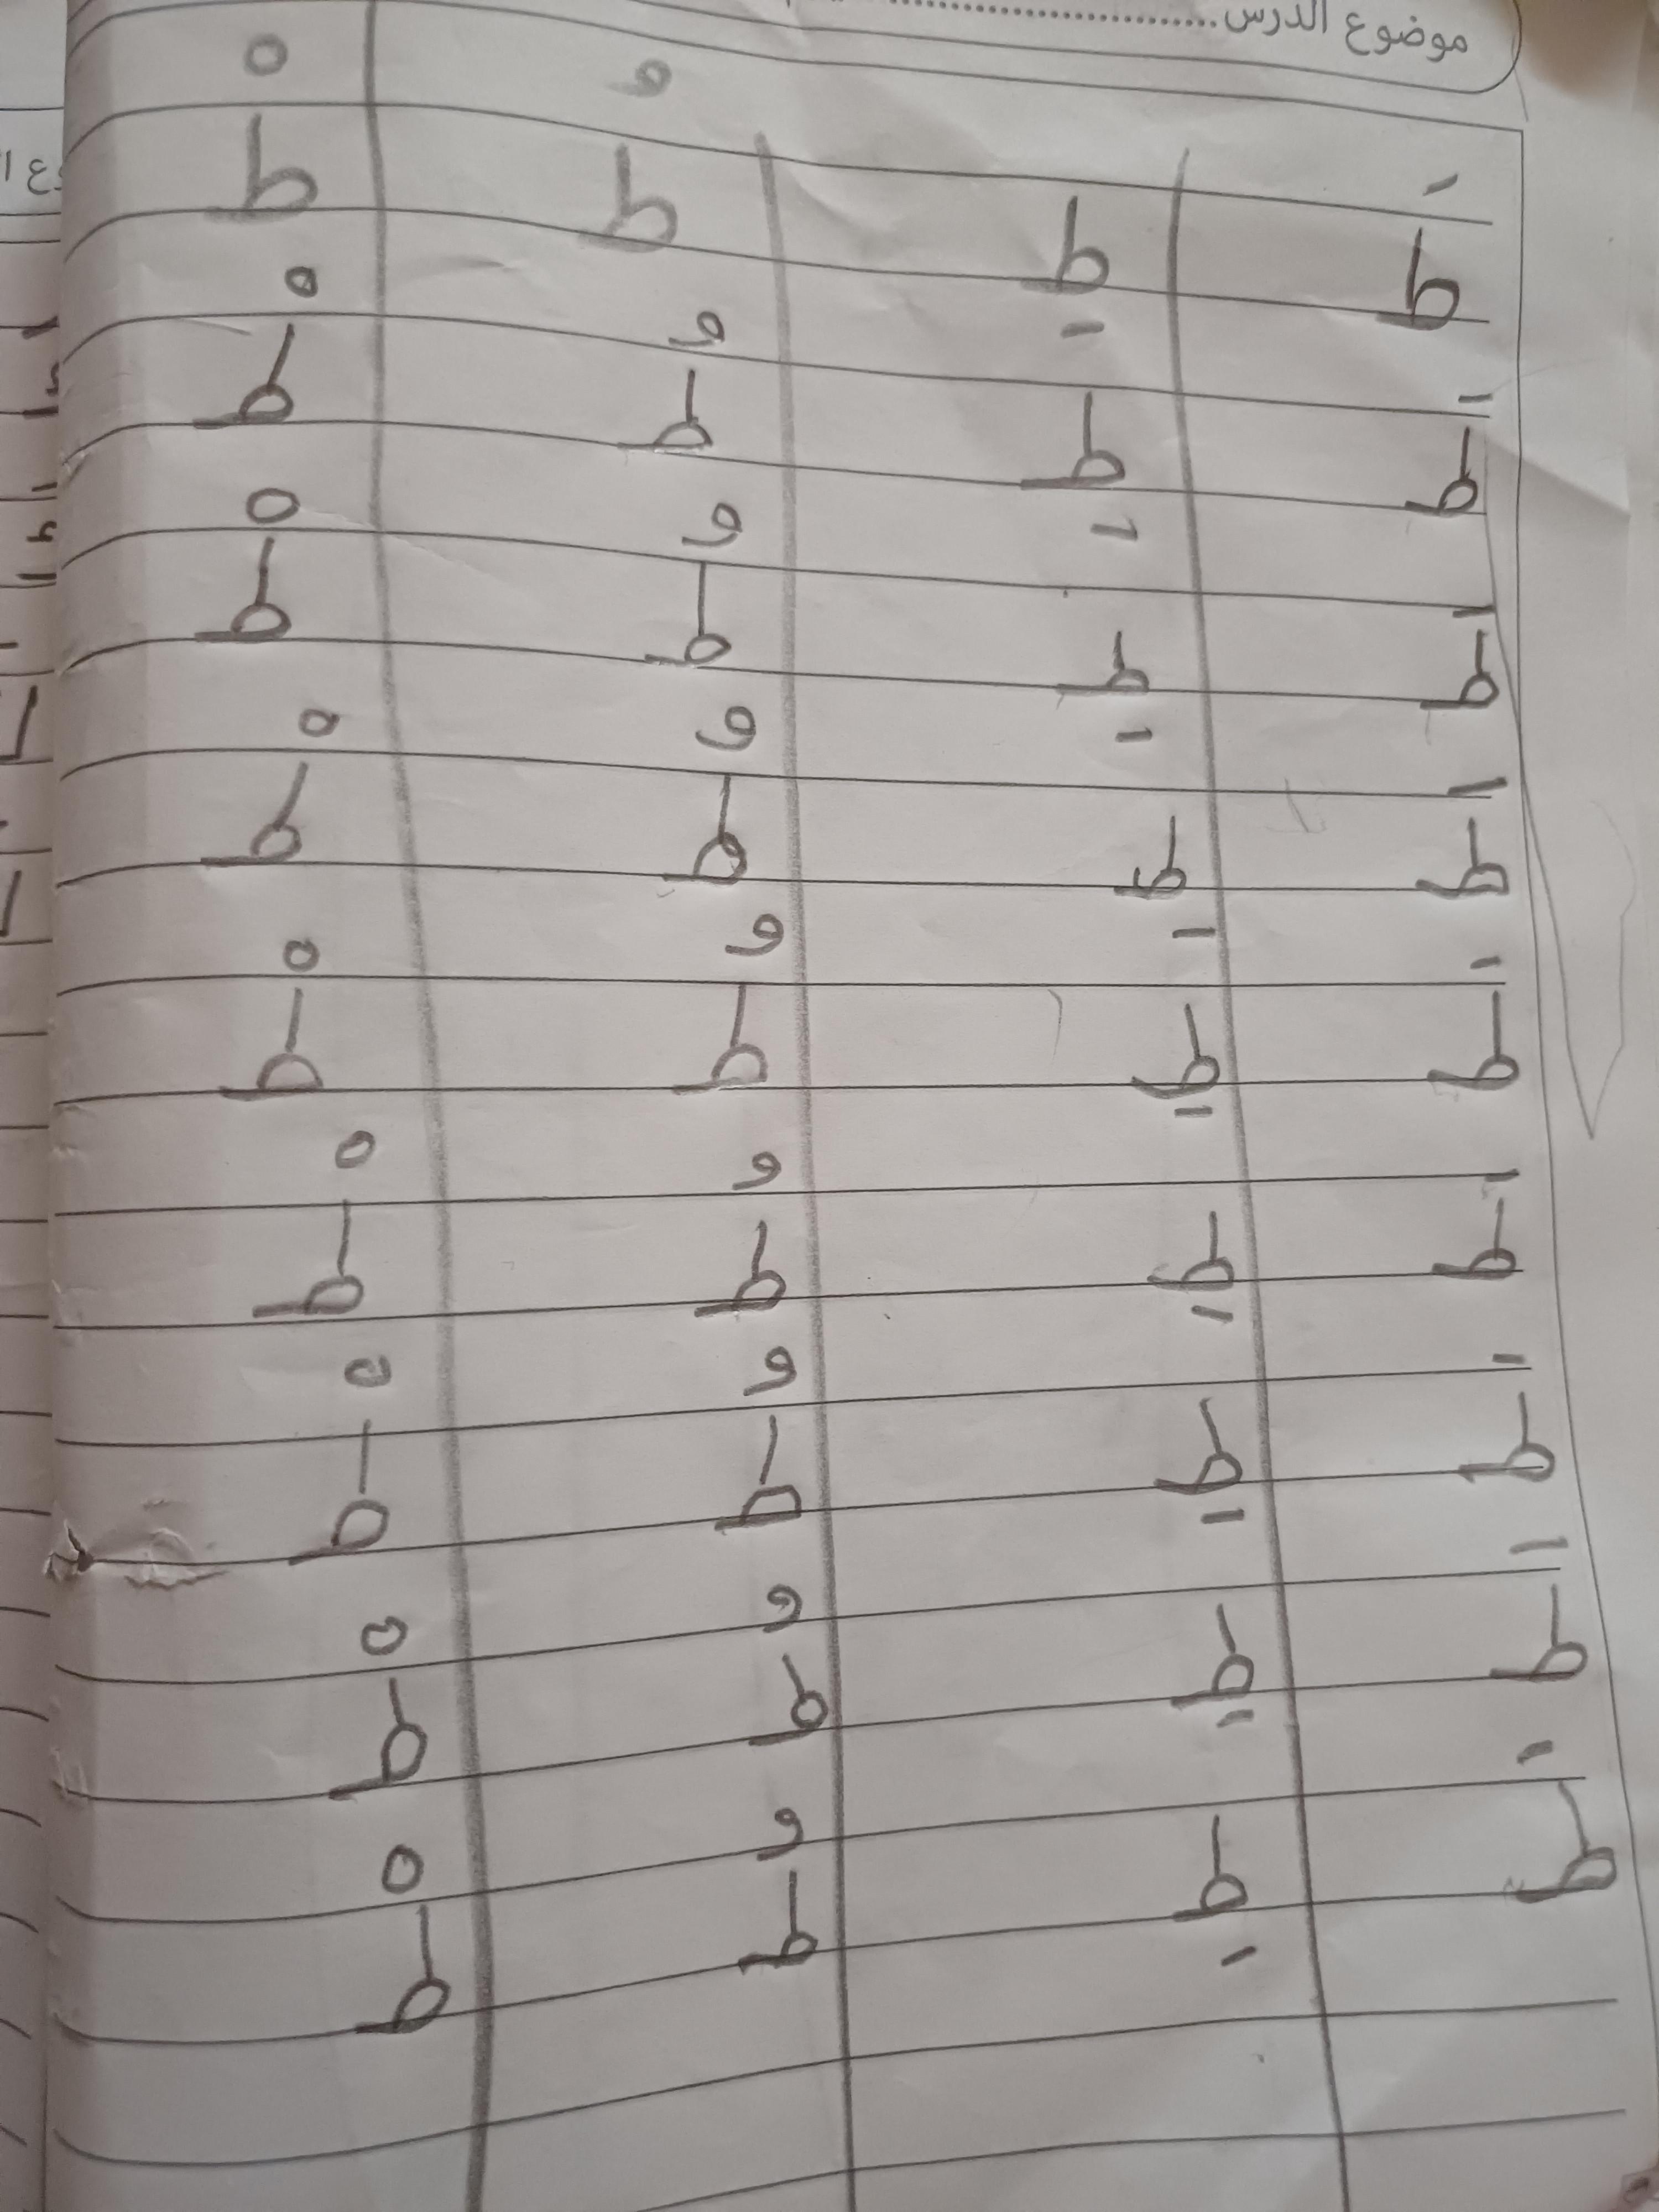 موضوع الدرس
طَ طِ طُ طْ
طَ طِ طُ طْ
طَ طِ طُ طْ
طَ طِ طُ طْ
طَ طِ طُ طْ
طَ طِ طُ طْ
طَ طِ طُ طْ
طَ طِ طُ طْ
طَ طِ طُ طْ